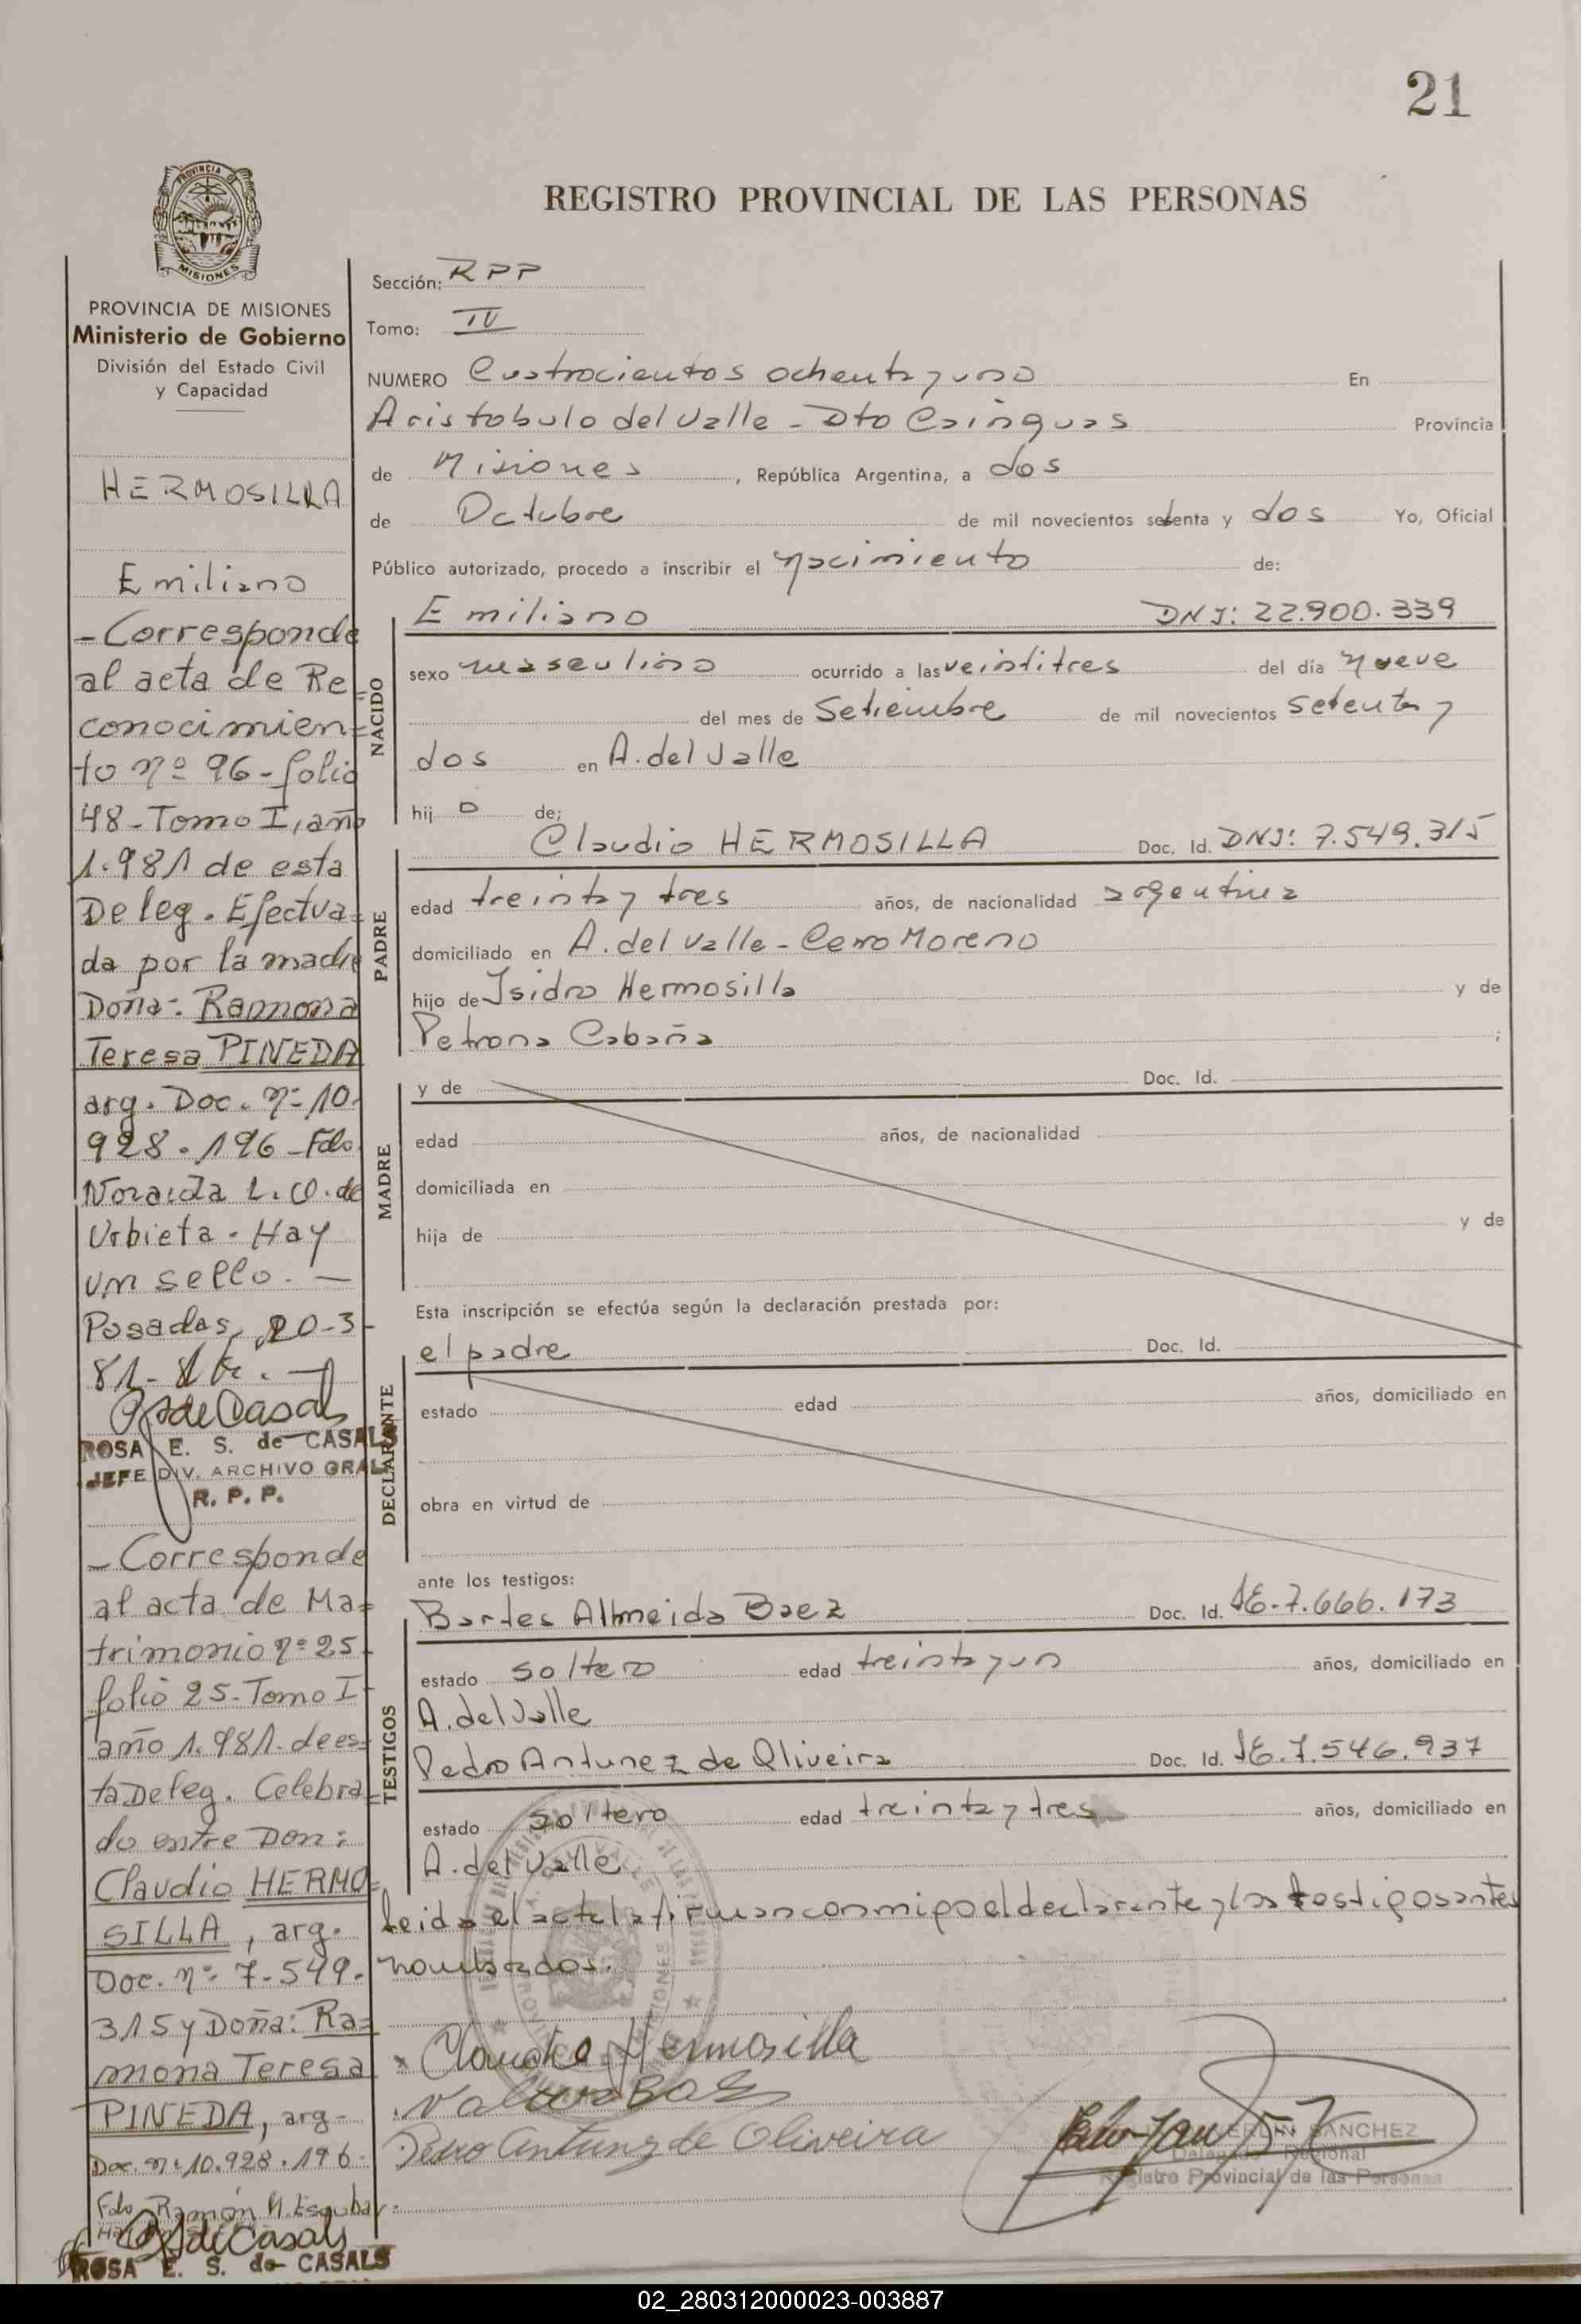 21
PROVINCIA D
MISIONES
REGISTRO PROVINCIAL DE LAS PERSONAS
PROVINCIA DE MISIONES
Ministerio de Gobierno
División del Estado Civil
y Capacidad
HERMOSILLA
Emiliano
- Corresponde
al acta de Re=
conocimien=
to nº 96 - folio
48 - Tomo I, año
1.981 de esta
Deleg. Efectua=
da por la madre
Doña: Ramona
Teresa PINEDA
arg. Doc. nº 10.
928.196 - Fdo
Noraida L. O. de
Urbieta - Hay
un sello. —
Posadas, 20-3-
81-
ROSA E. S. de CASALS
JEFE DIV. ARCHIVO GRAL
R. P. P.
- Corresponde
al acta de Ma=
trimonio nº 25
folio 25 - Tomo I
año 1.981. de es=
ta Deleg. Celebra=
do entre Don:
Claudio HERMO=
SILLA, arg.
Doc. nº 7.549.
315 y Doña: Ra=
mona Teresa
PINEDA, arg-
Doc. nº 10.928.196-
Fdo Ramón A. Escobar
ROSA E. S. de CASALS
Sección: RPP
Tomo: IV
NUMERO Cuatrocientos ochenta y uno En
Aristobulo del Valle - Dto Cainguas Provincia
de Misiones, República Argentina, a dos
de Octubre de mil novecientos setenta y dos Yo, Oficial
Público autorizado, procedo a inscribir el nacimiento de:
NACIDO
Emiliano DNJ: 22.900.339
sexo masculino ocurrido a las veintitres del día nueve
del mes de Setiembre de mil novecientos setenta y
dos en A. del Valle
hij o de;
PADRE
Claudio HERMOSILLA Doc. Id. DNJ: 7.549.315
edad treinta y tres años, de nacionalidad argentina
domiciliado en A. del Valle - Cerro Moreno
hijo de Isidro Hermosilla y de
Petrona Cabaña ;
MADRE
y de Doc. Id.
edad años, de nacionalidad
domiciliada en
hija de y de
Esta inscripción se efectúa según la declaración prestada por:
DECLARANTE
el padre Doc. Id.
estado edad años, domiciliado en
obra en virtud de
ante los testigos:
TESTIGOS
Bartes Almeida Baez Doc. Id. LE-7.666.173
estado soltero edad treinta y un años, domiciliado en
A. del Valle
Pedro Antunez de Oliveira Doc. Id. LE.7.546.937
estado soltero edad treinta y tres años, domiciliado en
A. del Valle
leida el acta la firman conmigo el declarante y los testigos antes
nombrados.
Claudio Hermosilla
Pedro Antunez de Oliveira
SANCHEZ
Delegado Regional
Registro Provincial de las Personas
02_280312000023-003887